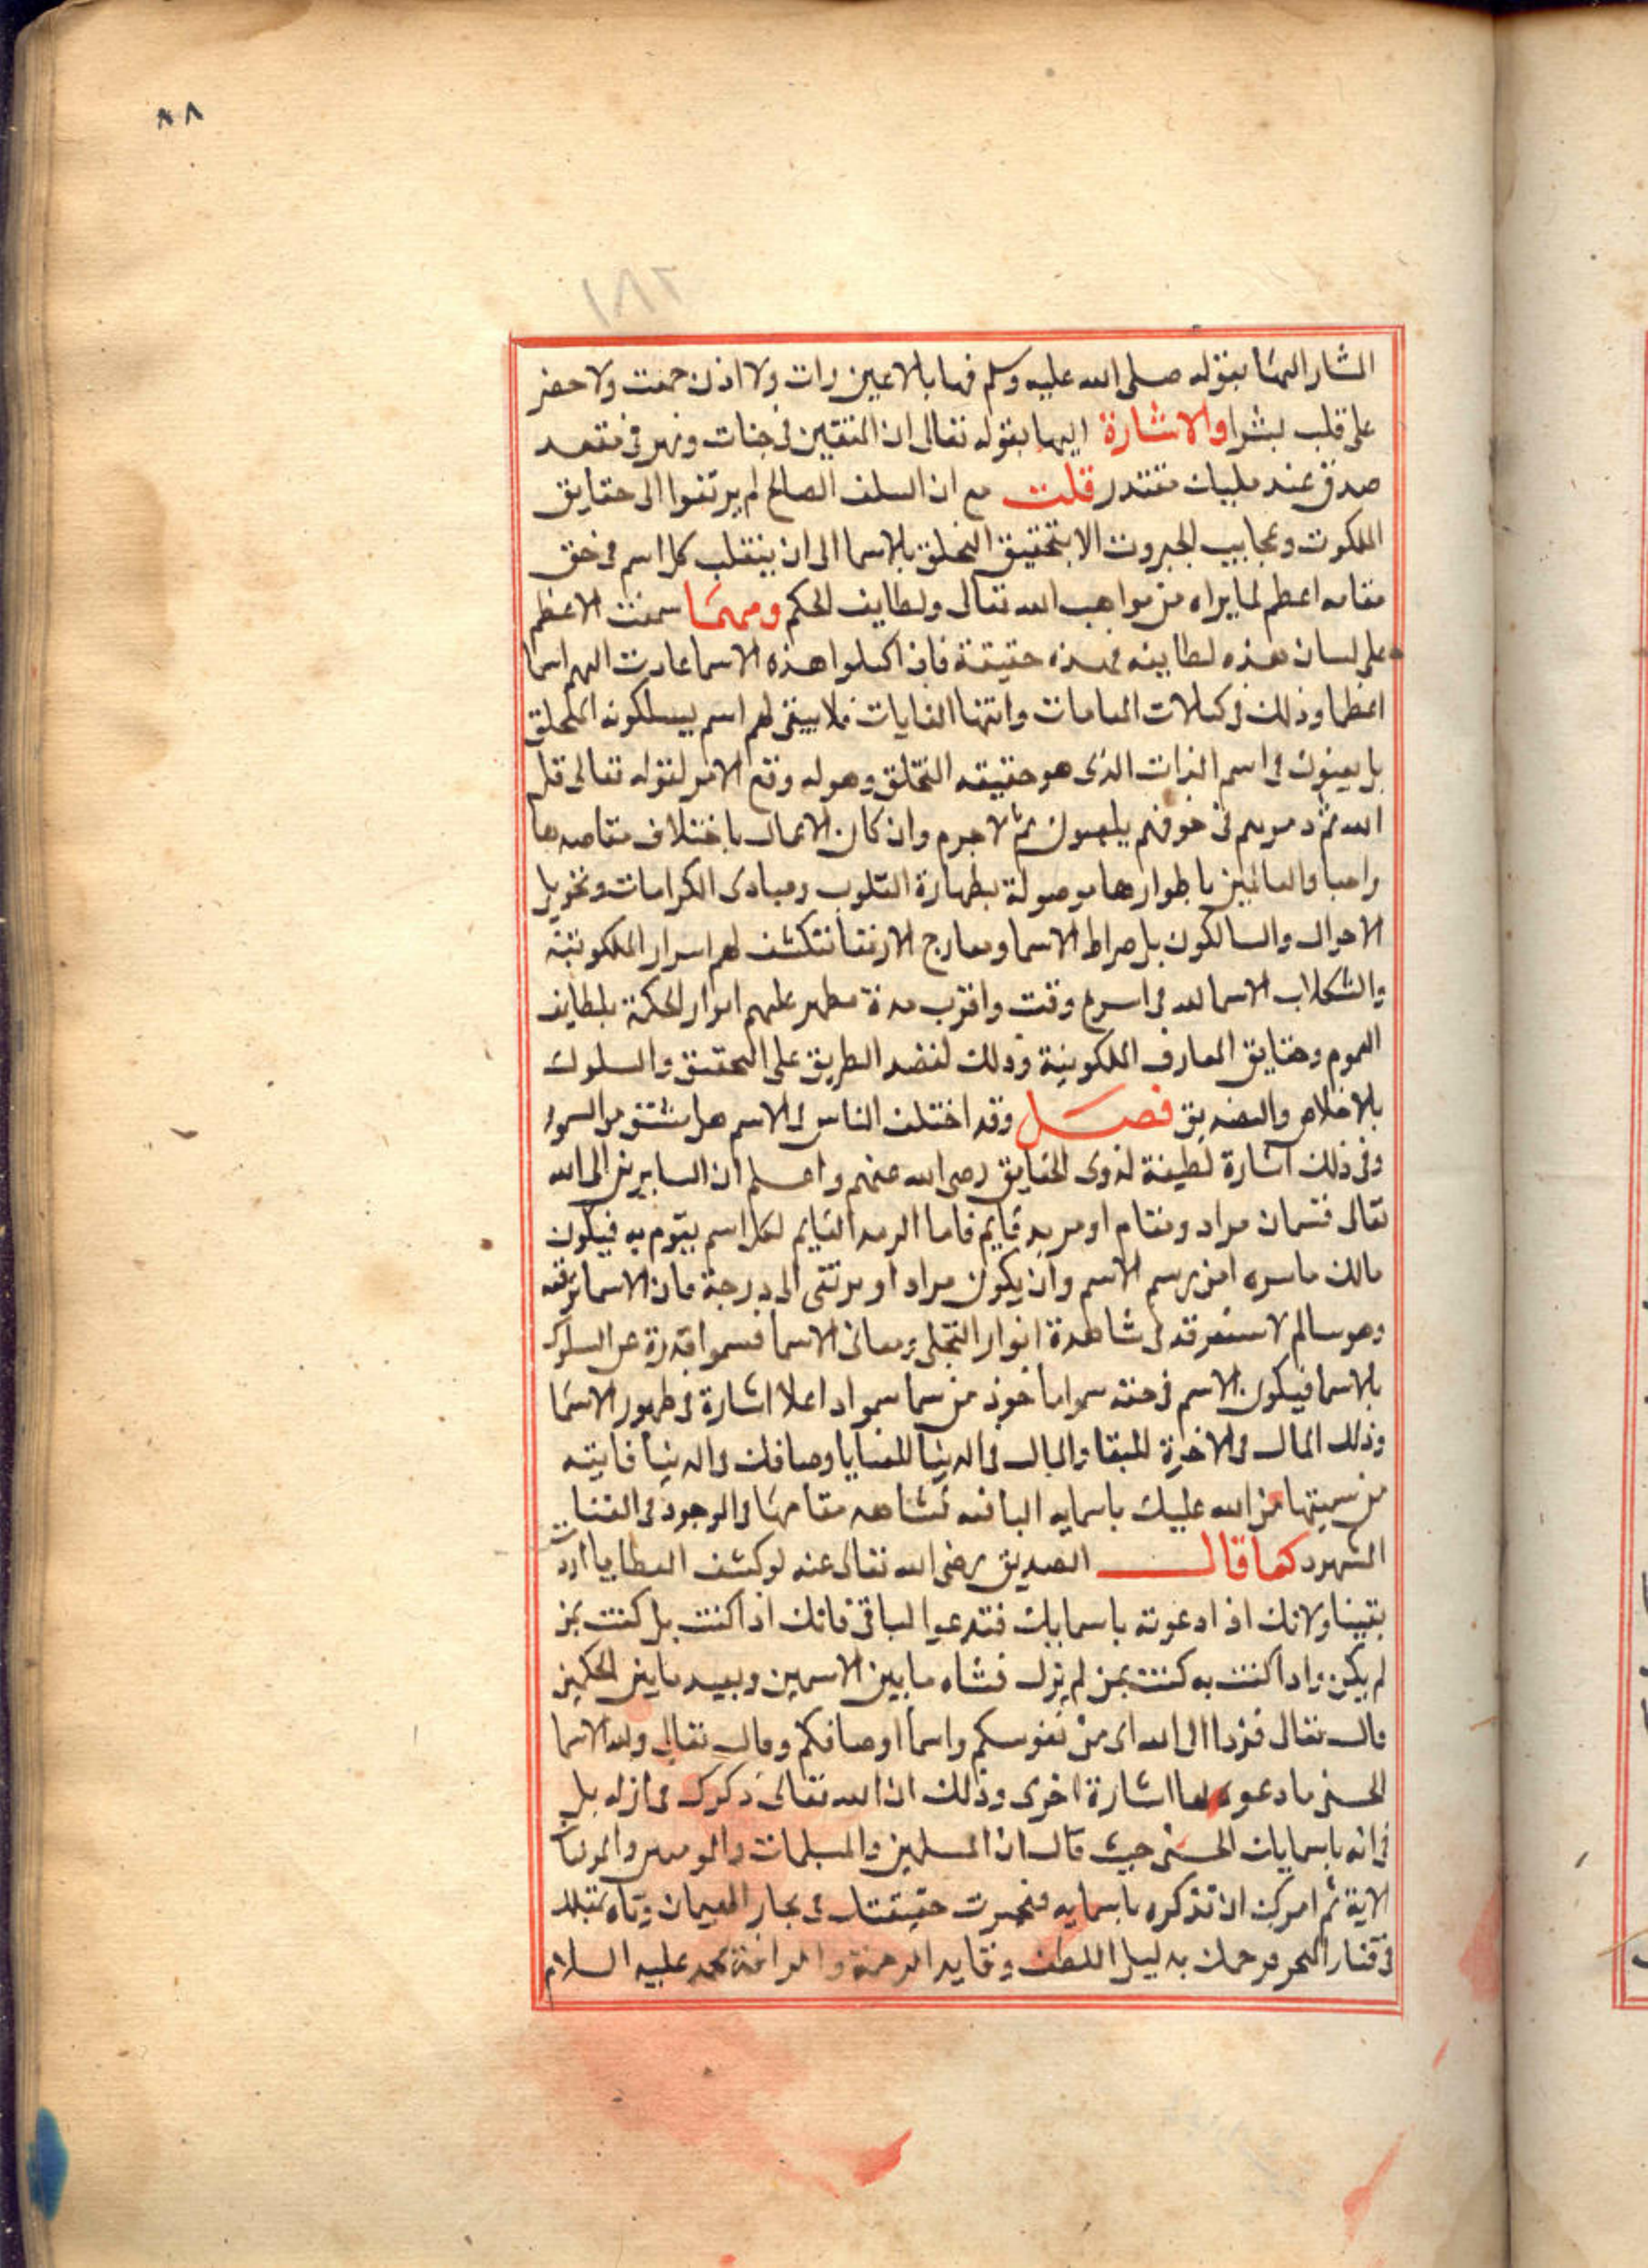 ٨٨
١٨٢
المشار اليها بقوله صلى الله عليه وسلم فيها بالاعين رات ولا اذن سمعت ولا خطر
على قلب بشرا والاشارة اليها بقوله تعالى ان المتقين في جنات ونهر في مقعد
صدق عند مليك مقتدر قلت مع ان السلف الصالح لم يرتقوا الى حقايق
الملكوت وعجايب الجبروت الا بتحقيق التخلق بالاسما الى ان ينقلب كل اسم في حق
مقامه اعظم لما يراه من مواهب الله تعالى ولطايف الحكم ومهما سمعت الاعظم
على لسان هذه لطايفه فهذه حقيقة فاذا كملوا هذه الاسما عادت اليهم اسما
اعظما وذلك في كمالات المقامات وانتها الغايات فلا يبقى لهم اسم يسلكونه التخلق
بل يعينون في اسم الذات الذي هو حقيقه التخلق وهو له وقع الامر لقوله تعالى قل
الله ثم ذرهم في خوضهم يلعبون ثم لا جرم وان كان الاعمال باختلاف مقاصدها
والعالمين باطوارها موصولة بطهارة القلوب ومبادى الكرامات وتحويل
الاحوال والسالكون بل صراط الاسما ومعارج الارتقا تنكشف لهم اسرار الملكوتية
الاسما لله في اسرع وقت واقرب مدة مظهر عليهم انوار الحكمة بلطايف
وحقايق المعارف الملكوتية وذلك لقصد الطريق على التحقيق والسلوك
بالاخلاص والتصديق فصل وقد اختلف الناس في الاسم هل مشتق من السمو
وفي ذلك اشارة لطيفة لذوى الحقايق رضى الله عنهم واعلم ان السايرين الى الله
تعالى قسمان مراد ومقام او مريد قايم فاما المريد القايم لكل اسم يقوم به فيكون
مالك ماسره امن برسم الاسم وان يكون مراد او يرتقى الى درجة فان الاسما ترقه
وهو سالم لاستغرقه في شاهدة انوار التجلى ومعانى الاسما عن السلوك
بالاسما فيكون الاسم في حقه سموا ماخوذ من سما سموا اذا علا اشارة في ظهور الاسما
وذلك المال في الاخرة للبقا والمال في الدنيا للفنا واوصافك في الدنيا فانيته
من سميتها من الله عليك باسمايه الباقيه تشاهد مقامها في الوجود في الفنا
الشهود كما قال الصديق رضى الله تعالى عنه لو كشف الغطا ما ازدت
يقينا ولانك اذا دعوته باسمايك فتدعوا الباقى فانك اذا كنت بك كنت بمن
لم يكن واذا كنت به كنت بمن لم يزل فشاه مابين الاسمين وبعيد مابين الحكمين
قال تعالى ففروا الى الله اى من نفوسكم واسما اوصافكم وقال تعالى ولله الاسما
الحسنى فادعوه بها اشارة اخرى وذلك ان الله تعالى ذكرك في ازله بل
في انه باسمايك الحسنى حيث قال ان المسلمين والمسلمات والمومنين والمومنات
الاية ثم امرك ان تذكره باسمايه فتحيرت حقيقتك في بحار الهيمان وتاه عقلك
في قفار التحير فرحمك به ليل اللطف وقايد الرحمة والرافة محمد عليه السلام